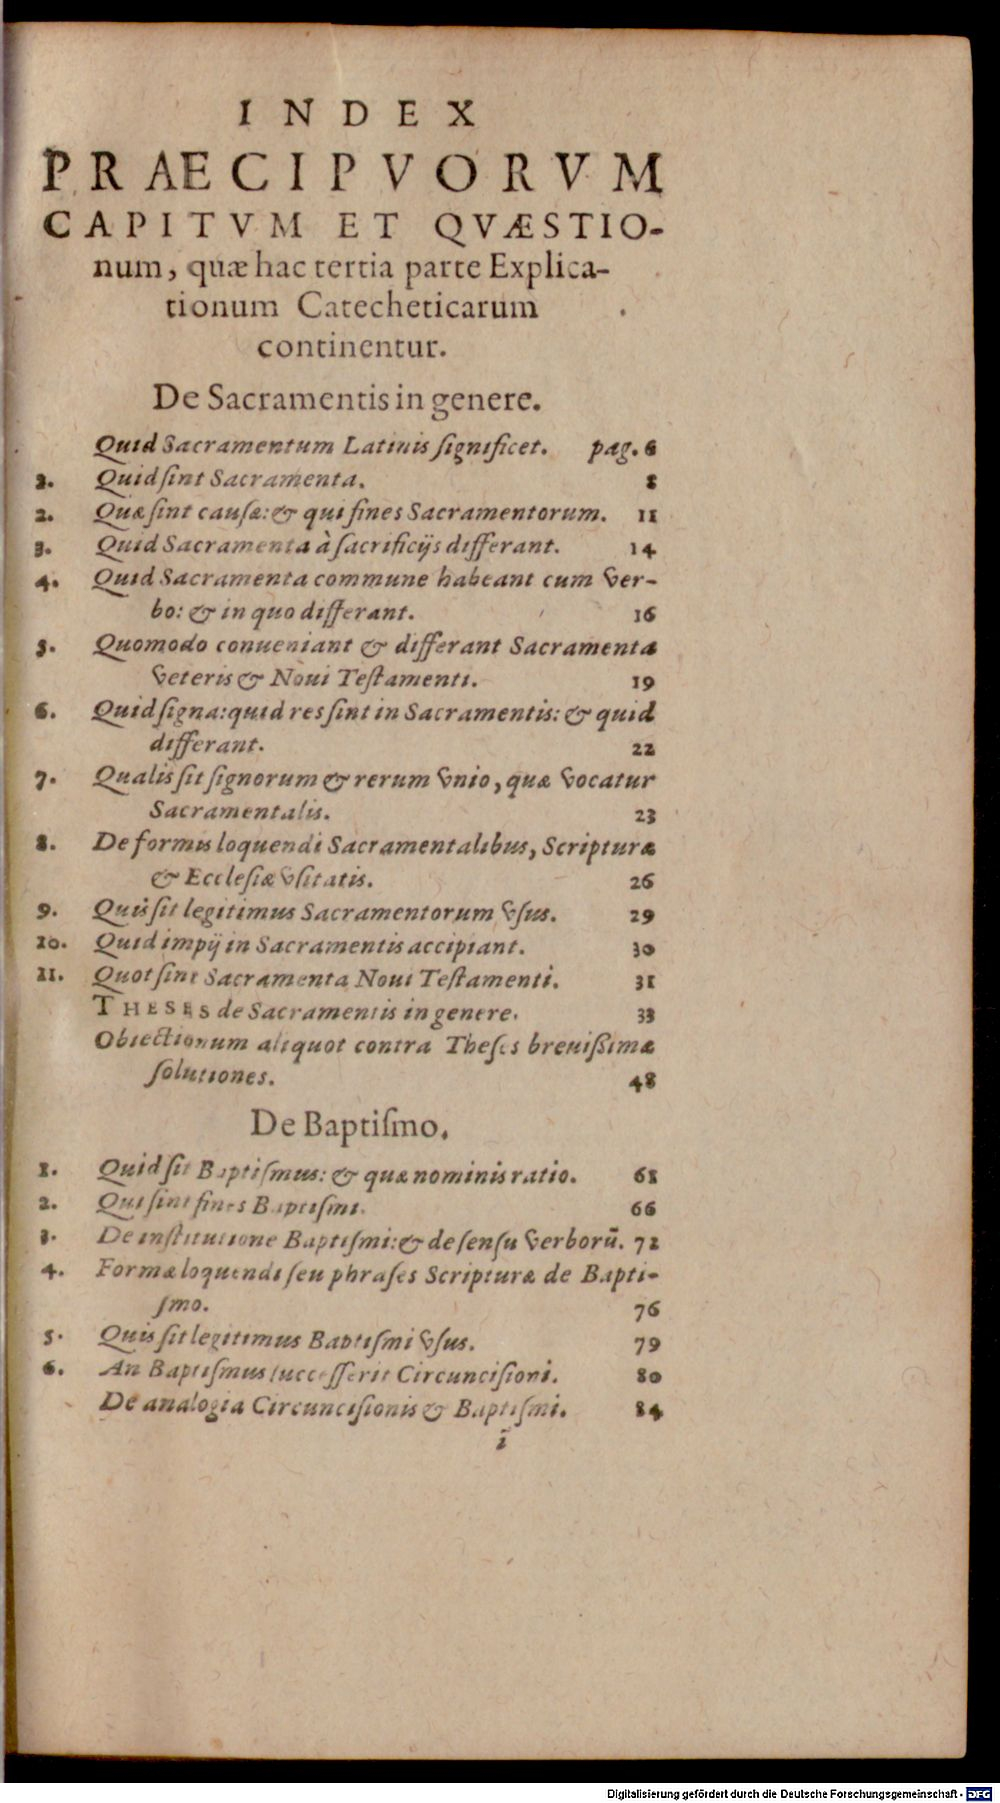 INDEX
PRAECIPVORVM
CAPITVM ET QVÆSTIO-
num, quæ hac tertia parte Explica-
tionum Catecheticarum
continentur.
De Sacramentis in genere.
Quid Sacramentum Latinis ſignificet. pag. 6
2. Quid ſint Sacramenta. 8
2. Quæ ſint cauſæ: & qui fines Sacramentorum. 11
3. Quid Sacramenta à ſacrificijs differant. 14
4. Quid Sacramenta commune habeant cum Ver-
bo: & in quo differant. 16
5. Quomodo conueniant & differant Sacramenta
Veteris & Noui Teſtamenti. 19
6. Quid ſigna: quid res ſint in Sacramentis: & quid
differant. 22
7. Qualis ſit ſignorum & rerum Vnio, quæ Vocatur
Sacramentalis. 23
8. De formis loquendi Sacramentalibus, Scripturæ
& Eccleſiæ Vſitatis. 26
9. Quis ſit legitimus Sacramentorum Vſus. 29
10. Quid impij in Sacramentis accipiant. 30
11. Quot ſint Sacramenta Noui Teſtamenti. 31
THESES de Sacramentis in genere. 33
Obiectionum aliquot contra Theſes breuiſsimæ
ſolutiones. 48
De Baptiſmo.
1. Quid ſit Baptiſmus: & quæ nominis ratio. 61
2. Qui ſint fines Baptiſmi. 66
3. De inſtitutione Baptiſmi: & de ſenſu Verborũ. 72
4. Formæ loquendi ſeu phraſes Scripturæ de Bapti-
ſmo. 76
5. Quis ſit legitimus Baptiſmi Vſus. 79
6. An Baptiſmus ſucceſſerit Circunciſioni. 80
De analogia Circunciſionis & Baptiſmi. 84
ĩ
Digitalisierung gefördert durch die Deutsche Forschungsgemeinschaft - DFG